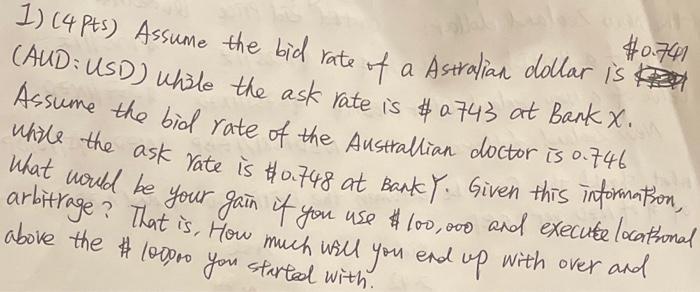 1) (4 pts) Assume the bid rate of a Astralian dollar is $0.741
(AUD:USD) while the ask rate is $0.743 at Bank X.
Assume the bid rate of the Australlian doctor is 0.746
while the ask rate is $0.748 at Bank Y. Given this information,
What would be your gain if you use $100,000 and execute locational
arbitrage? That is, How much will you end up with over and
above the $100,000 you started with.